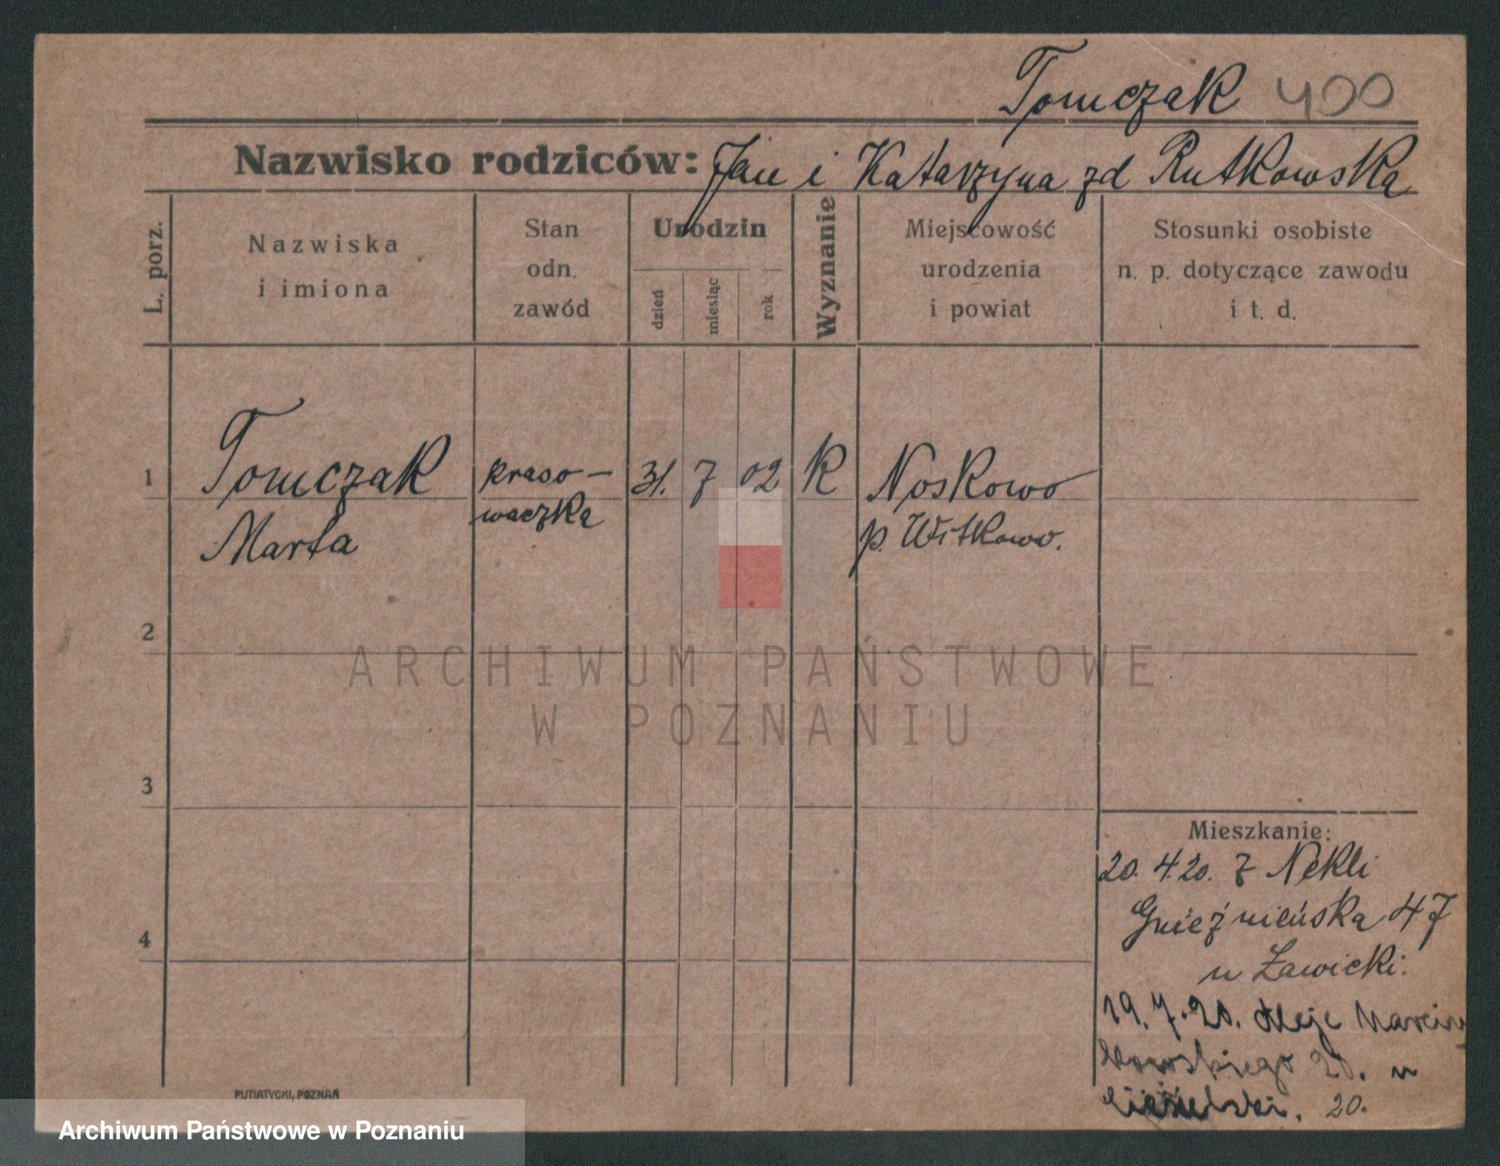 Tomczak 400
Nazwisko rodziców: Jan i Katarzyna zd Rutkowska
L. porz.
Nazwiska
i imiona
Stan
odn.
zawód
Urodzin
dzień
miesiąc
rok
Wyznanie
Miejscowość
urodzenia
i powiat
Stosunki osobiste
n. p. dotyczące zawodu
i t. d.
1 Tomczak kraso- 31. 7 02 k Noskowo
Marta waczka p. Witkowo.
2
3
4
ARCHIWUM PAŃSTWOWE
W POZNANIU
Mieszkanie:
20. 4 20. z Nekli
Gnieźnieńska 47
u Zawicki.
19. 7. 20. Aleje Marcin
kowskiego 20. u
20.
PUTIATYCKI, POZNAŃ
Archiwum Państwowe w Poznaniu